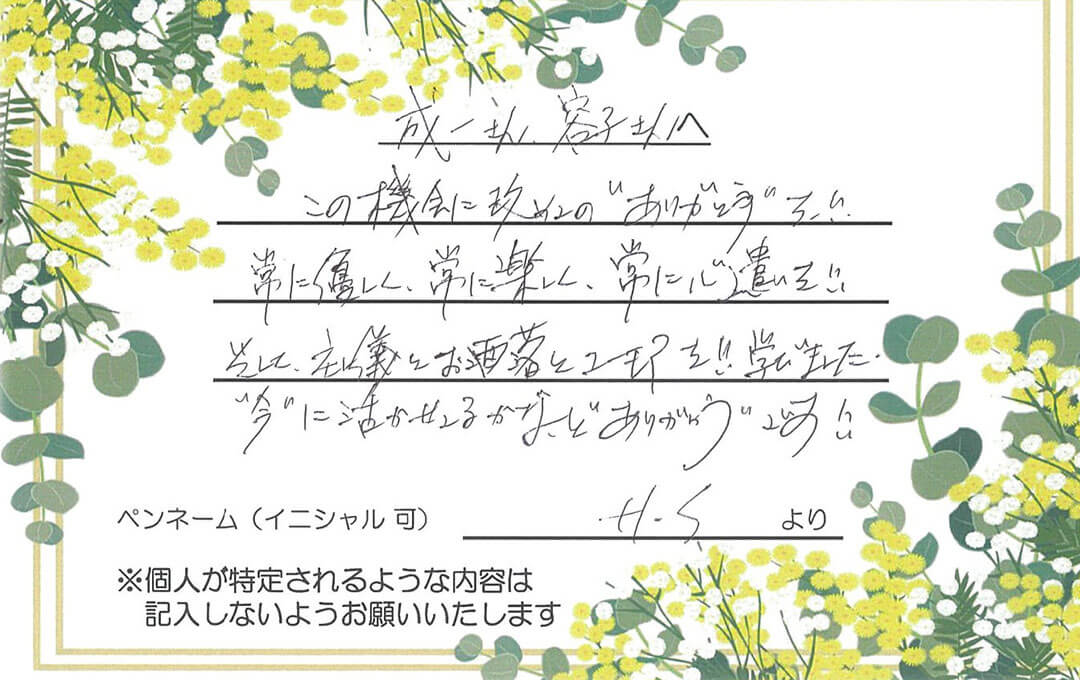 成一さん、容子さんへ
この機会に改めての"ありがとう"を、!!
常に優しく、常に楽しく、常に心遣いを!!
そして、主義とお洒落とユーモアを!!学びました。
"今"に活かせてるかな、ど"ありがとう"です!!
ペンネーム（イニシャル 可） H-S. より
※個人が特定されるような内容は
記入しないようお願いいたします